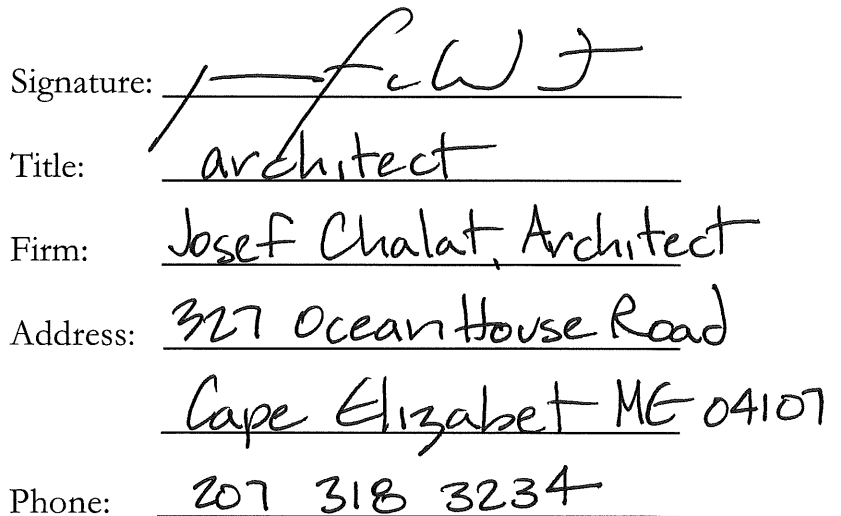 Signature:
Title: architect
Firm: Josef Chalat, Architect
Address: 327 Ocean House Road
Cape Elizabet ME 04107
Phone: 207 318 3234